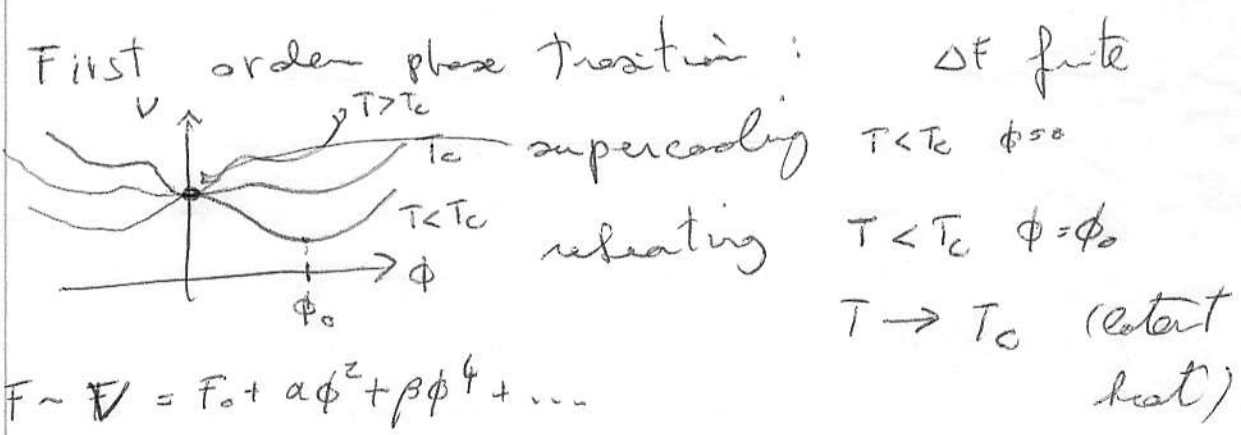 First order phase transition : ΔF finite
V T>Tc
Tc supercooling T<Tc ϕ=0
T<Tc
reheating T<Tc ϕ=ϕ₀
ϕ
ϕ₀
T → Tc (latent
F ~ V = F₀ + αϕ² + βϕ⁴ + .... heat)